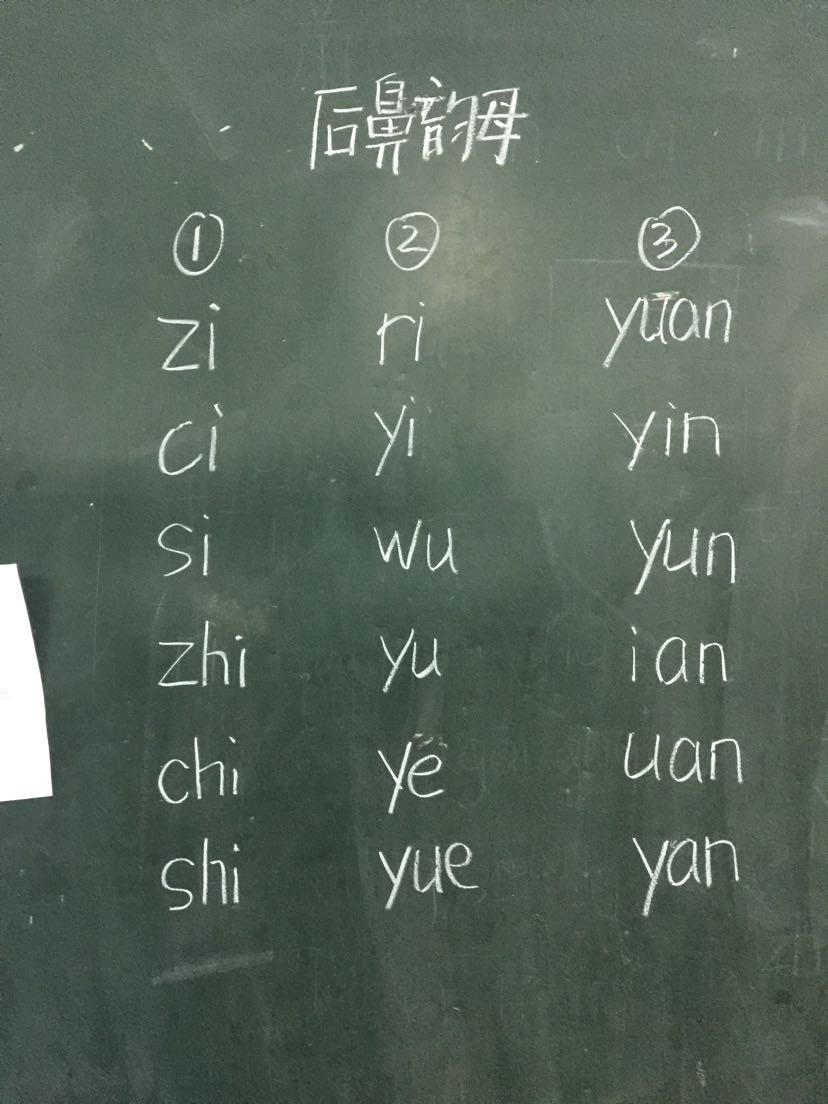 后鼻韵母
① ② ③
zi ri yuan
ci yi yin
si wu yun
zhi yu ian
chi ye uan
shi yue yan